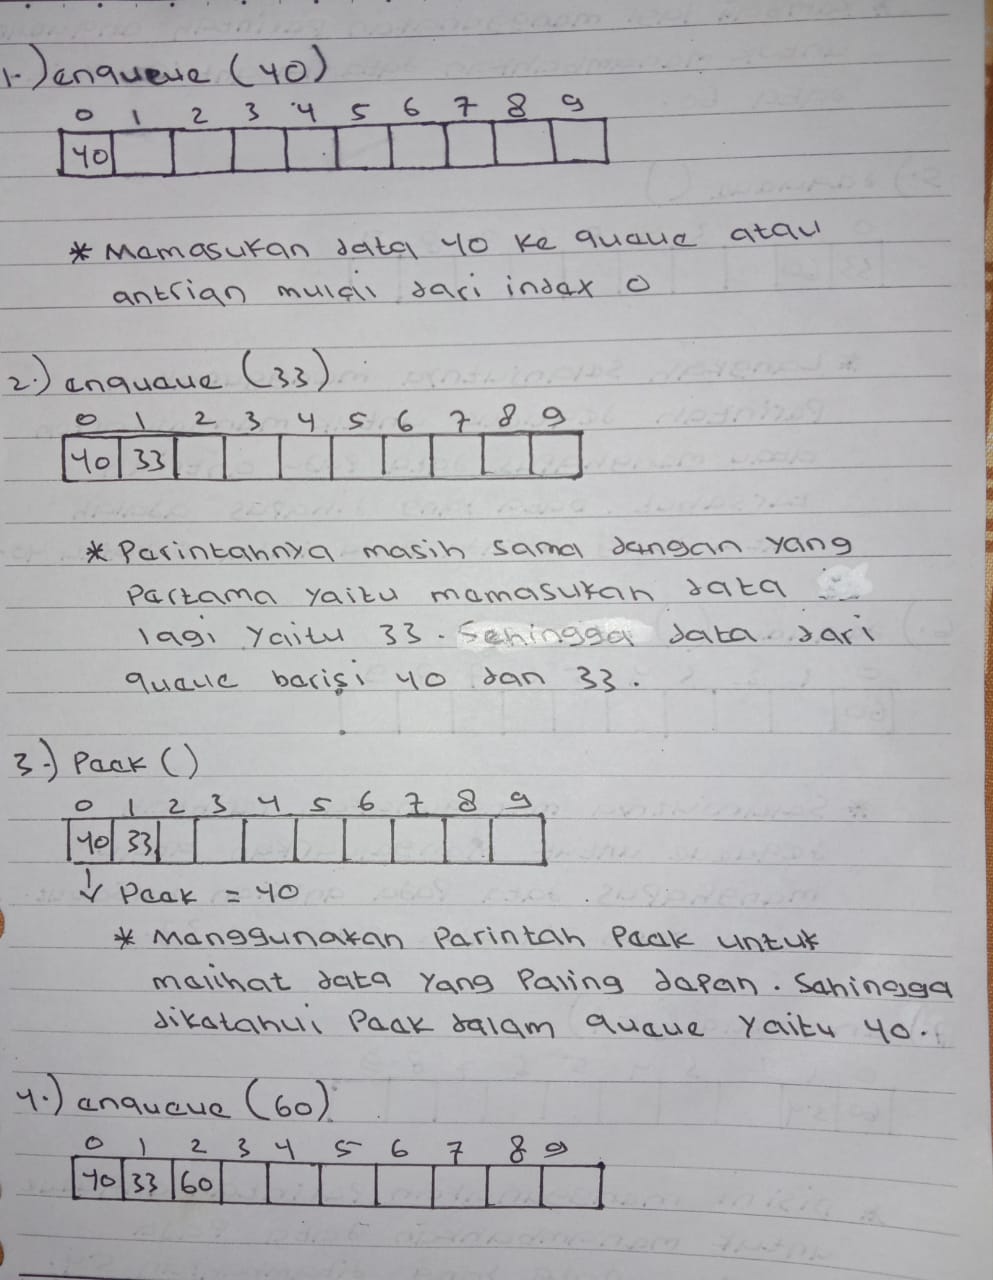 1.) enqueue (40)
0 1 2 3 4 5 6 7 8 9
40
* Memasukan data 40 ke queue atau
antrian mulai dari index 0
2.) enqueue (33)
0 1 2 3 4 5 6 7 8 9
40 33
* Perintahnya masih sama dengan yang
Pertama yaitu memasukan data
lagi yaitu 33. Sehingga data dari
queue berisi 40 dan 33.
3.) Peek ()
0 1 2 3 4 5 6 7 8 9
40 33
↓ Peek = 40
* Menggunakan Perintah Peek untuk
melihat data yang Paling depan. Sehingga
diketahui Peek dalam queue yaitu 40.
4.) enqueue (60)
0 1 2 3 4 5 6 7 8 9
40 33 60